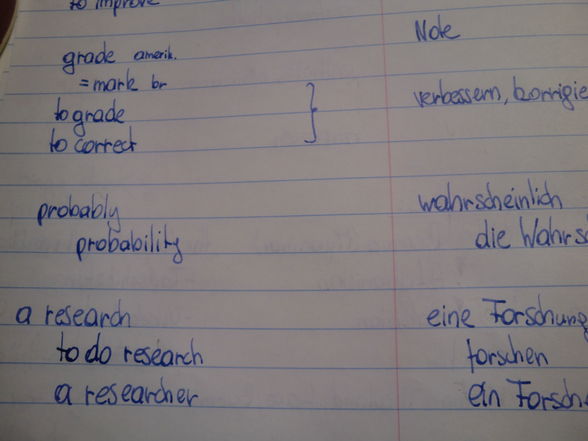 to improve
Note
grade amerik.
= mark br
to grade
verbessern, korrigie
to correct
probably wahrscheinlich
probability die Wahrs
a research eine Forschung
to do research forschen
a researcher ein Forsch